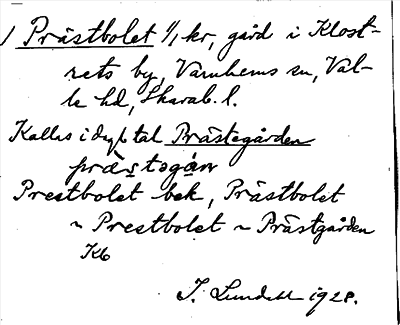 1 Prästbolet 1/1 kr, gård i Klost-
rets by, Varnhems sn, Val-
le hd, Skarab. l.
Kallas i dagl. tal Prästegården
præstəgán
Prestbolet bek, Prästbolet
~ Prestbolet ~ Prästgården
Kb
I. Lundahl 1928.